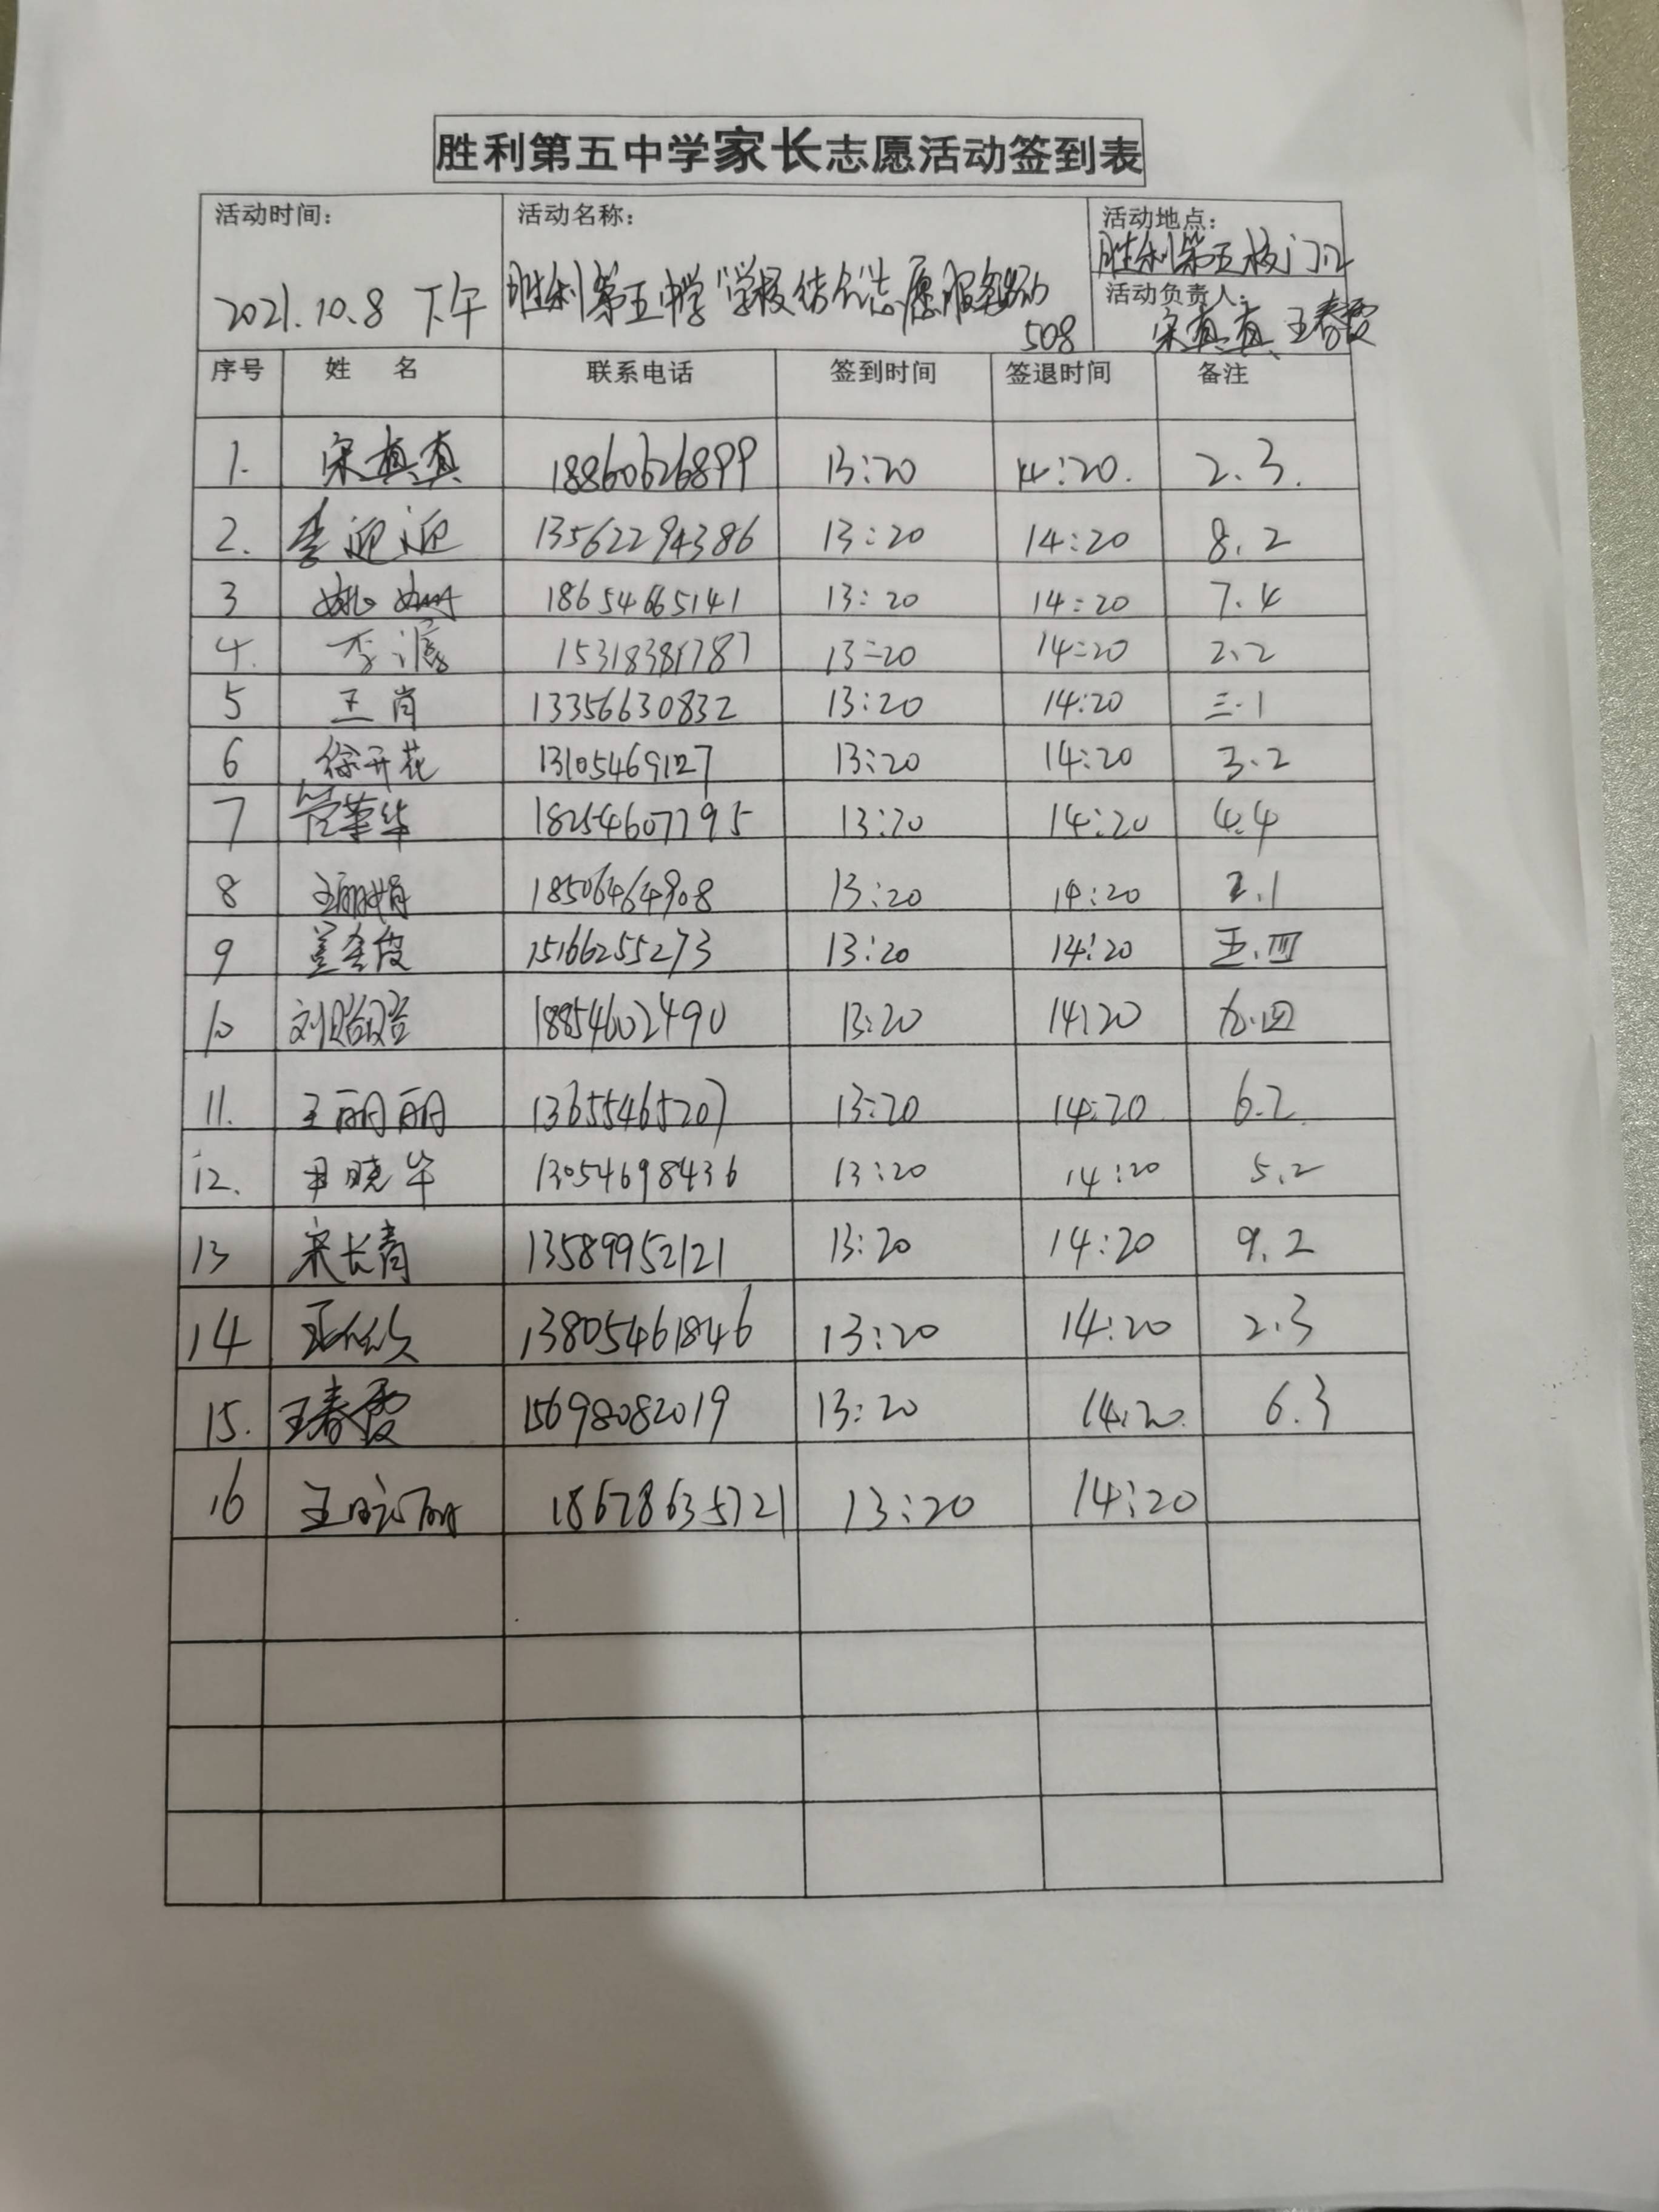 胜利第五中学家长志愿活动签到表
活动时间: 活动名称: 活动地点:
2021.10.8 下午 胜利第五中学"学校 志愿服务活动 胜利第五校门口
508 活动负责人: 宋真真、王春霞
序号 姓 名 联系电话 签到时间 签退时间 备注
1. 宋真真 18860626899 13:20 14:20. 2.3.
2. 李迎迎 13562294386 13:20 14:20 8.2
3 姚姗 18654665141 13:20 14:20 7.4
4. 李 15318381787 13:20 14:20 2.2
5 王肖 13356630832 13:20 14:20 三.1
6 徐开花 13105469127 13:20 14:20 3.2
7 管董华 18254607795 13:20 14:20 4.4
8 王丽娟 18506464908 13:20 14:20 2.1
9 15166255273 13:20 14:20 五.III
10 刘 18854602490 13:20 14:20 九.四
11. 王丽丽 13655465207 13:20 14:20 6.2
12. 尹晓华 13054698436 13:20 14:20 5.2
13 宋长青 13589952121 13:20 14:20 9.2
14 13805461846 13:20 14:20 2.3
15. 王春霞 15698082019 13:20 14:20. 6.3
16 王 18678635721 13:20 14:20